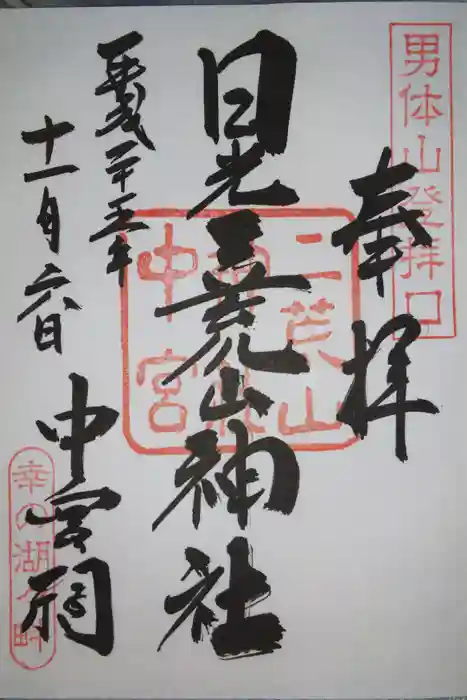 男体山登拝口
奉拝
日光二荒山神社
二荒山
神社
中宮
平成二十五年
十一月六日
中宮祠
幸の湖畔